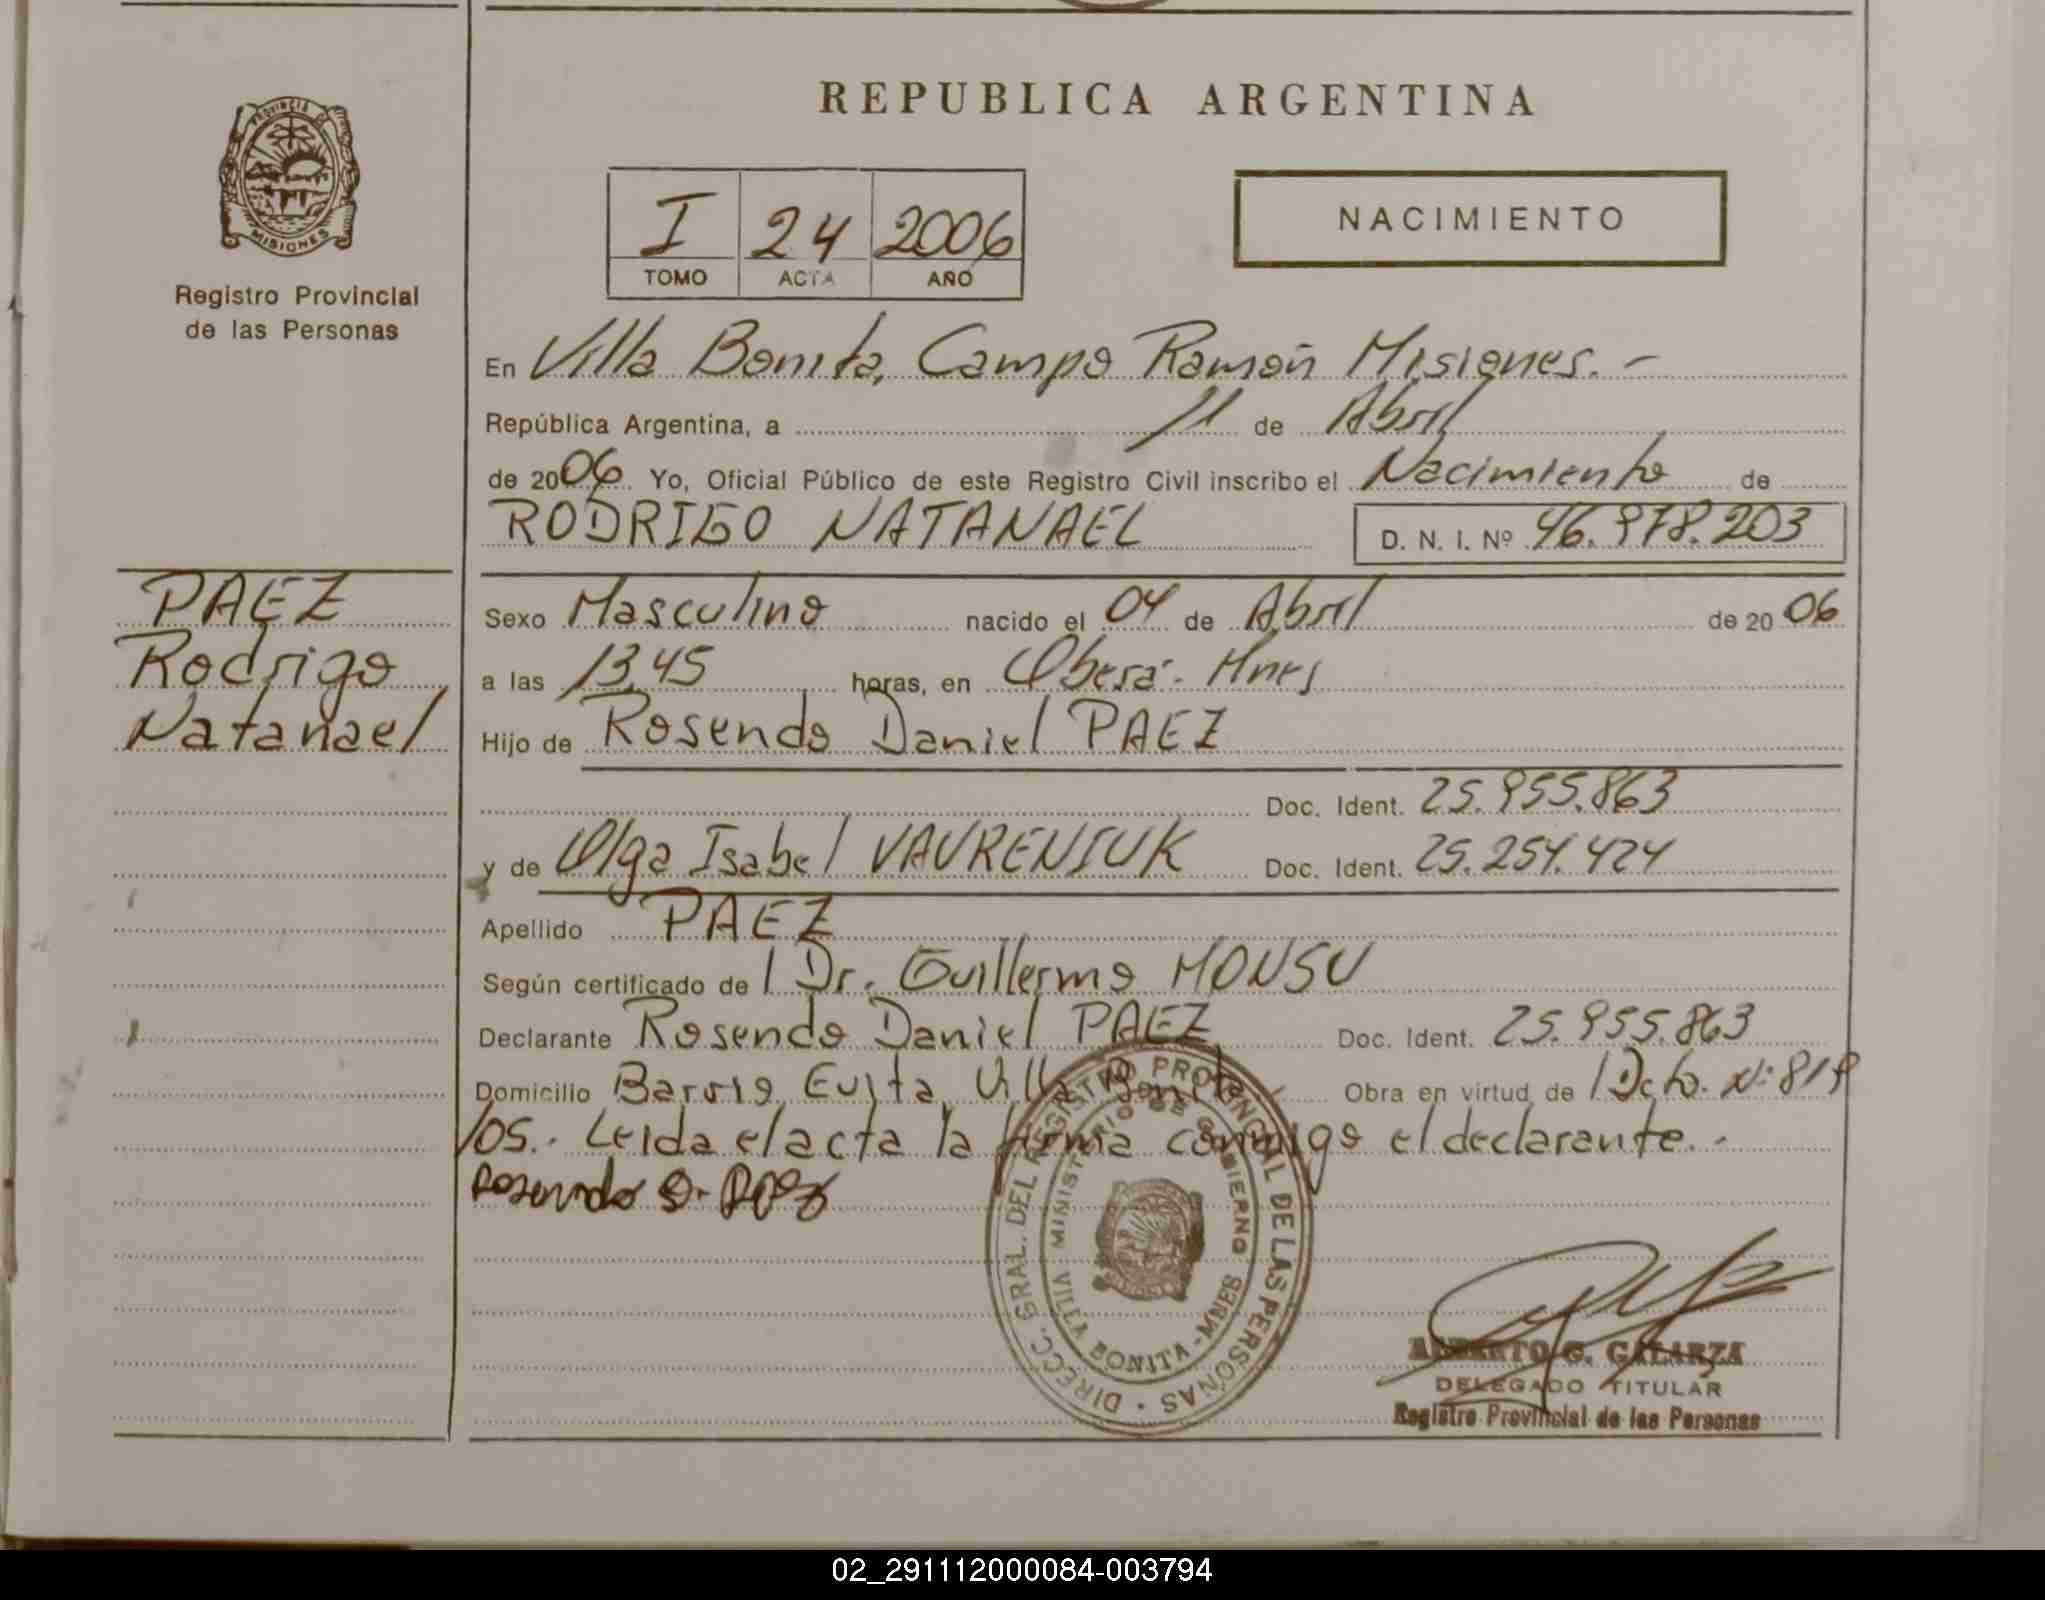 REPUBLICA ARGENTINA
PROVINCIA DE
MISIONES
Registro Provincial
de las Personas
I 24 2006
TOMO ACTA AÑO
NACIMIENTO
En Villa Bonita, Campo Ramón Misiones.-
República Argentina, a 11 de Abril
de 2006 Yo, Oficial Público de este Registro Civil inscribo el Nacimiento de
RODRIGO NATANAEL D. N. I. Nº 46.978.203
PAEZ
Rodrigo
Natanael
Sexo Masculino nacido el 04 de Abril de 2006
a las 13,45 horas, en Oberá- Mnes
Hijo de Rosendo Daniel PAEZ
Doc. Ident. 25.955.863
y de Olga Isabel VAVRENIUK Doc. Ident. 25.254.424
Apellido PAEZ
Según certificado de l Dr. Guillermo MONSU
Declarante Rosendo Daniel PAEZ Doc. Ident. 25.955.863
Domicilio Barrio Evita, Villa Bonita Obra en virtud de l Dcto. Nº 819
/05.- Leida el acta la firma conmigo el declarante.-
Rosendo D. Paez
DIRECC. GRAL. DEL REGISTRO PROVINCIAL DE LAS PERSONAS
MINISTERIO DE GOBIERNO
VILLA BONITA - MNES
ALBERTO G. GALARZA
DELEGADO TITULAR
Registro Provincial de las Personas
02_291112000084-003794